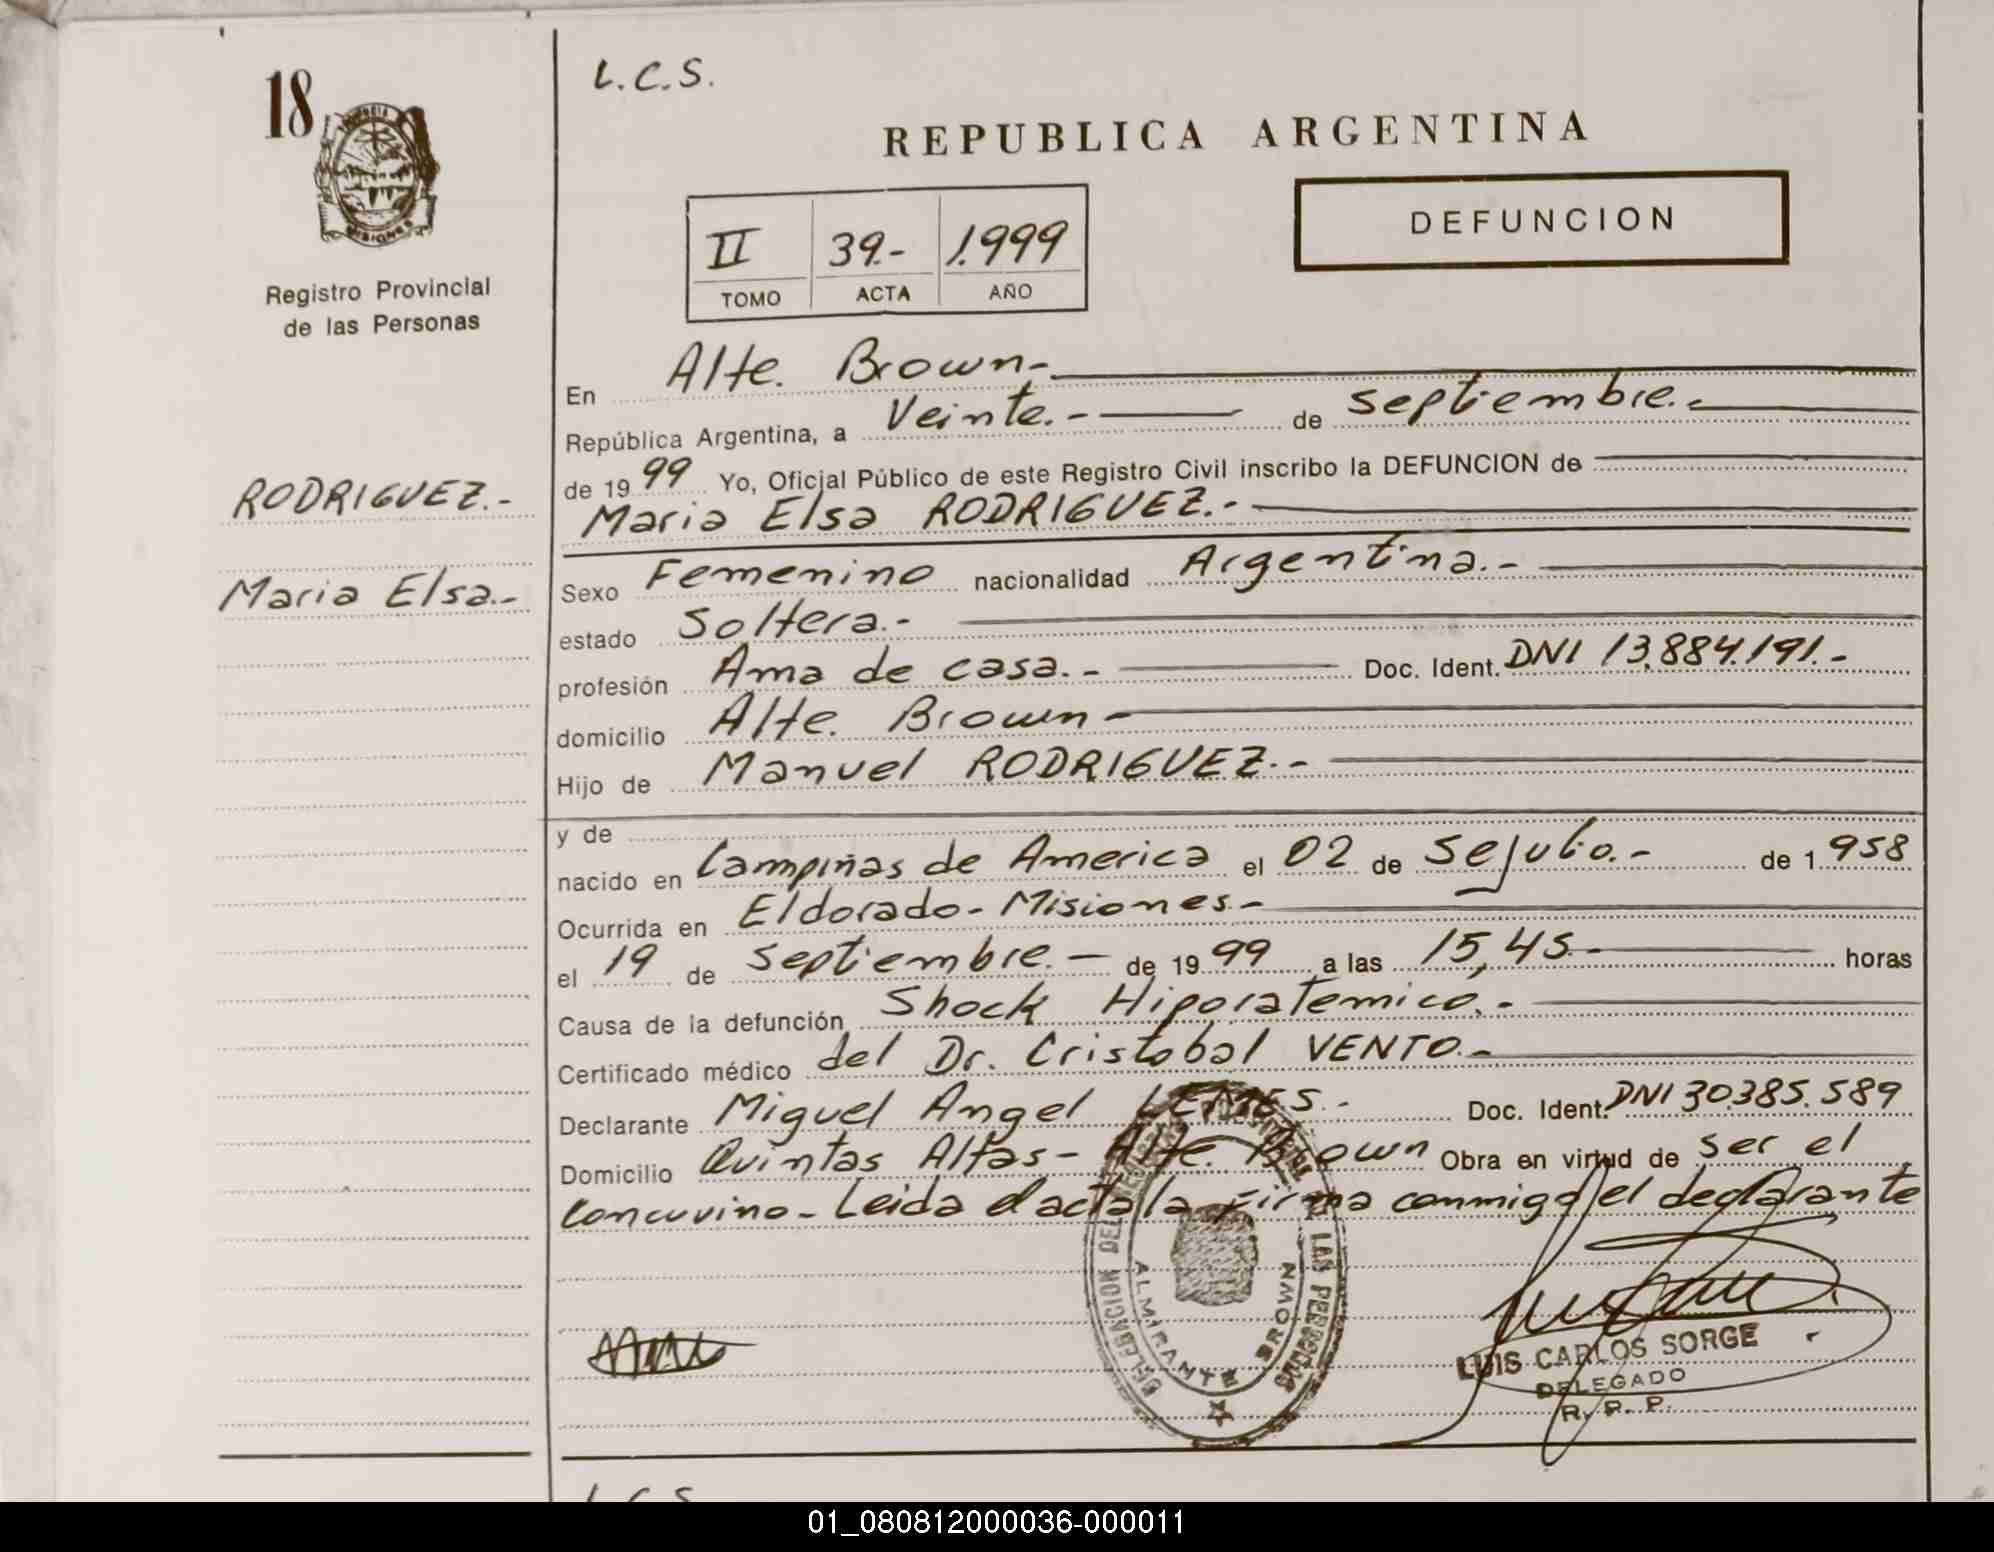 L.C.S.
18
PROVINCIA
MISIONES
REPUBLICA ARGENTINA
DEFUNCION
II 39.- 1.999
TOMO ACTA AÑO
Registro Provincial
de las Personas
En Alte. Brown.-
República Argentina, a Veinte.- de septiembre.-
de 1999 Yo, Oficial Público de este Registro Civil inscribo la DEFUNCION de
RODRIGUEZ.-
Maria Elsa RODRIGUEZ.-
Maria Elsa.-
Sexo Femenino nacionalidad Argentina.-
estado Soltera.-
profesión Ama de casa.- Doc. Ident. DNI 13.884.191.-
domicilio Alte. Brown-
Hijo de Manuel RODRIGUEZ.-
y de
nacido en Campiñas de America el 02 de Julio.- de 1.958
Ocurrida en Eldorado-Misiones.-
el 19 de septiembre.- de 1999 a las 15,45.- horas
Causa de la defunción Shock
Certificado médico del Dr. Cristobal VENTO.-
Declarante Miguel Angel LEMES.- Doc. Ident. DNI 30.385.589
Domicilio Quintas Altas- Alte. Brown Obra en virtud de ser el
concuvino- Leida el acta la firma conmigo el declarante
DELEGACION DEL LAS PERSONAS
ALMIRANTE BROWN
LUIS CARLOS SORGE
DELEGADO
R. P. P.
L.C.S
01_080812000036-000011